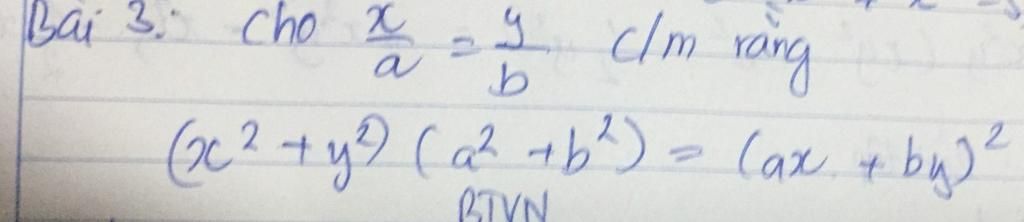 Bài 3: Cho x/a = y/b c/m rằng
(x² + y²) (a² + b²) = (ax + by)²
BTVN